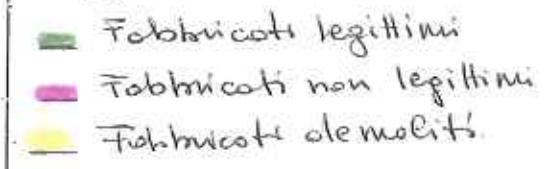 Fabbricati legittimi
Fabbricati non legittimi
Fabbricati demoliti